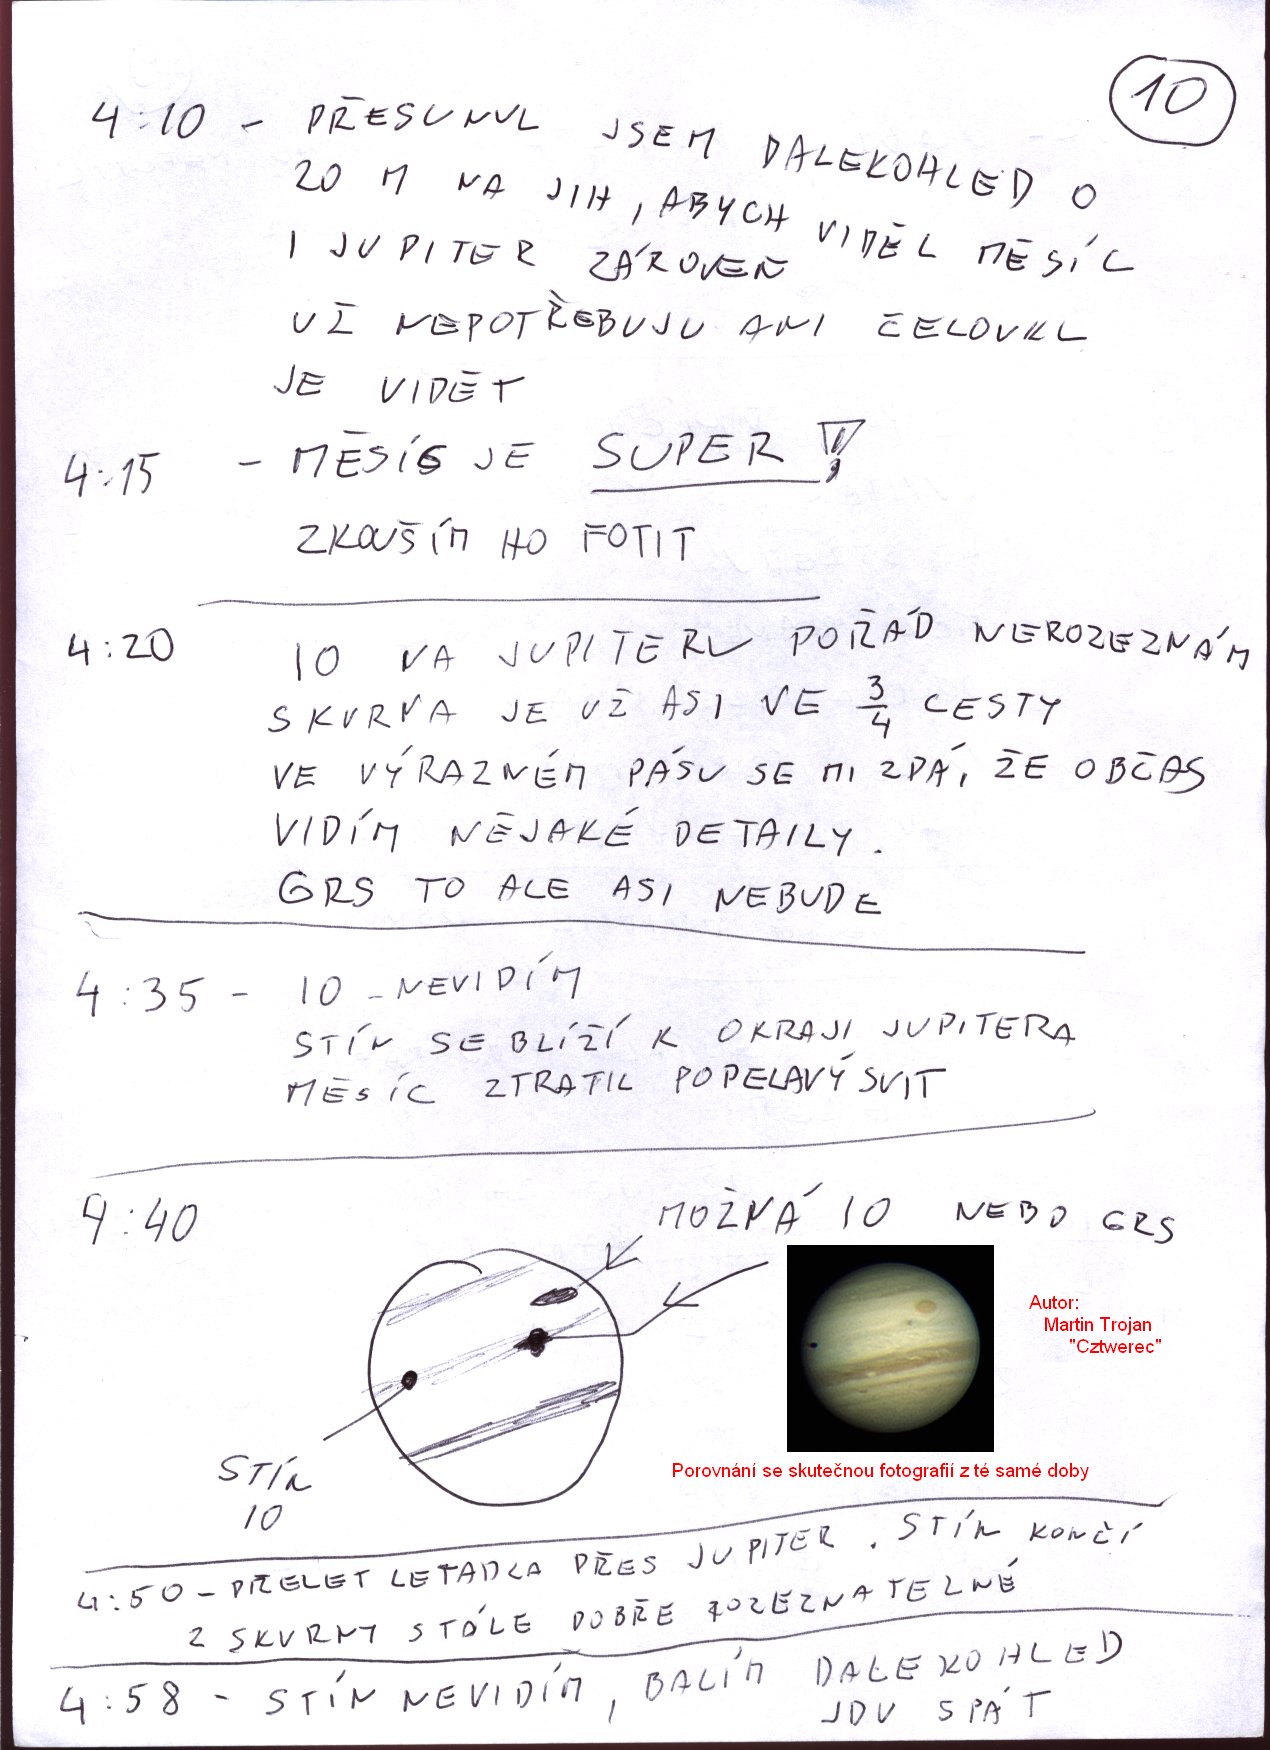 10
4:10 - PŘESUNUL JSEM DALEKOHLED O
20 M NA JIH, ABYCH VIDĚL MĚSÍC
I JUPITER ZÁROVEŇ
UŽ NEPOTŘEBUJU ANI ČELOVKU
JE VIDĚT
4:15 - MĚSÍC JE SUPER!
ZKOUŠÍM HO FOTIT
4:20 IO NA JUPITERU POŘÁD NEROZEZNÁM
SKVRNA JE UŽ ASI VE 3/4 CESTY
VE VÝRAZNÉM PÁSU SE MI ZDÁ, ŽE OBČAS
VIDÍM NĚJAKÉ DETAILY.
GRS TO ALE ASI NEBUDE
4:35 - IO - NEVIDÍM
STÍN SE BLÍŽÍ K OKRAJI JUPITERA
MĚSÍC ZTRATIL POPELAVÝ SVIT
4:40
MOŽNÁ IO NEBO GRS
Autor:
Martin Trojan
"Cztwerec"
STÍN
IO
Porovnání se skutečnou fotografií z té samé doby
4:50 - PŘELET LETADLA PŘES JUPITER. STÍN KONČÍ
2 SKVRNY STÁLE DOBŘE ROZEZNATELNÉ
4:58 - STÍN NEVIDÍM, BALÍM DALEKOHLED
JDU SPÁT